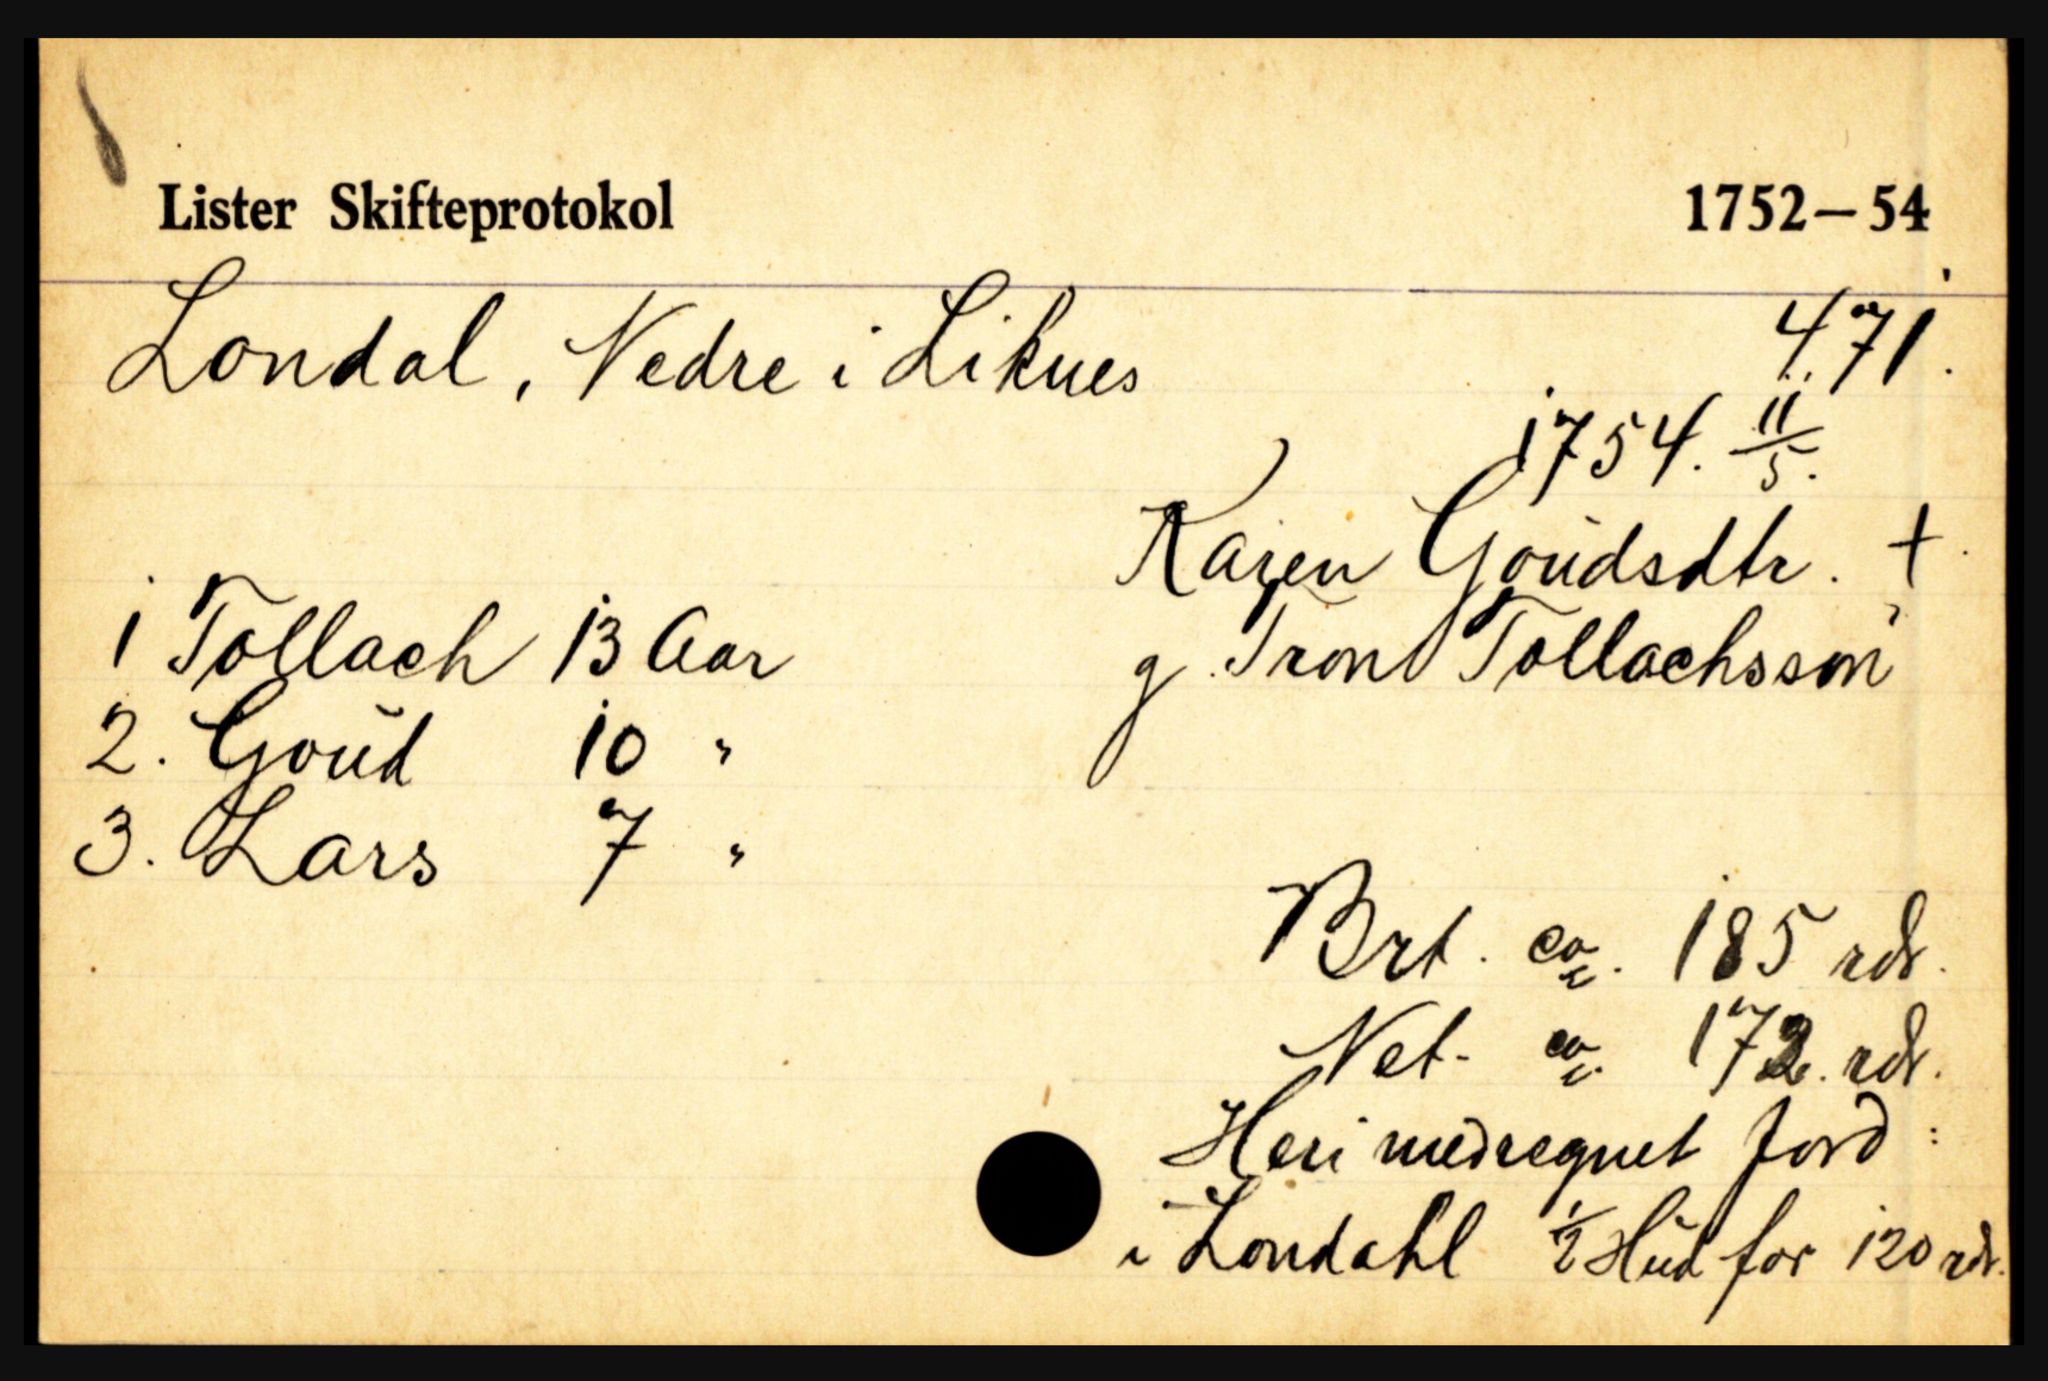 Lister Skifteprotokol 1752–54
Londal, Nedre i Liknes 471.
1754. 11/5.
Karen Goudsdtr. †.
1 Tollach 13 Aar g. Tron Tollachssøn
2. Goud 10 "
3. Lars 7 "
Brt. ca. 185 rdr.
Net. ca. 172. rdr.
Heri medregnet Jord:
i Londahl 1/2 Hud for 120 rdr.